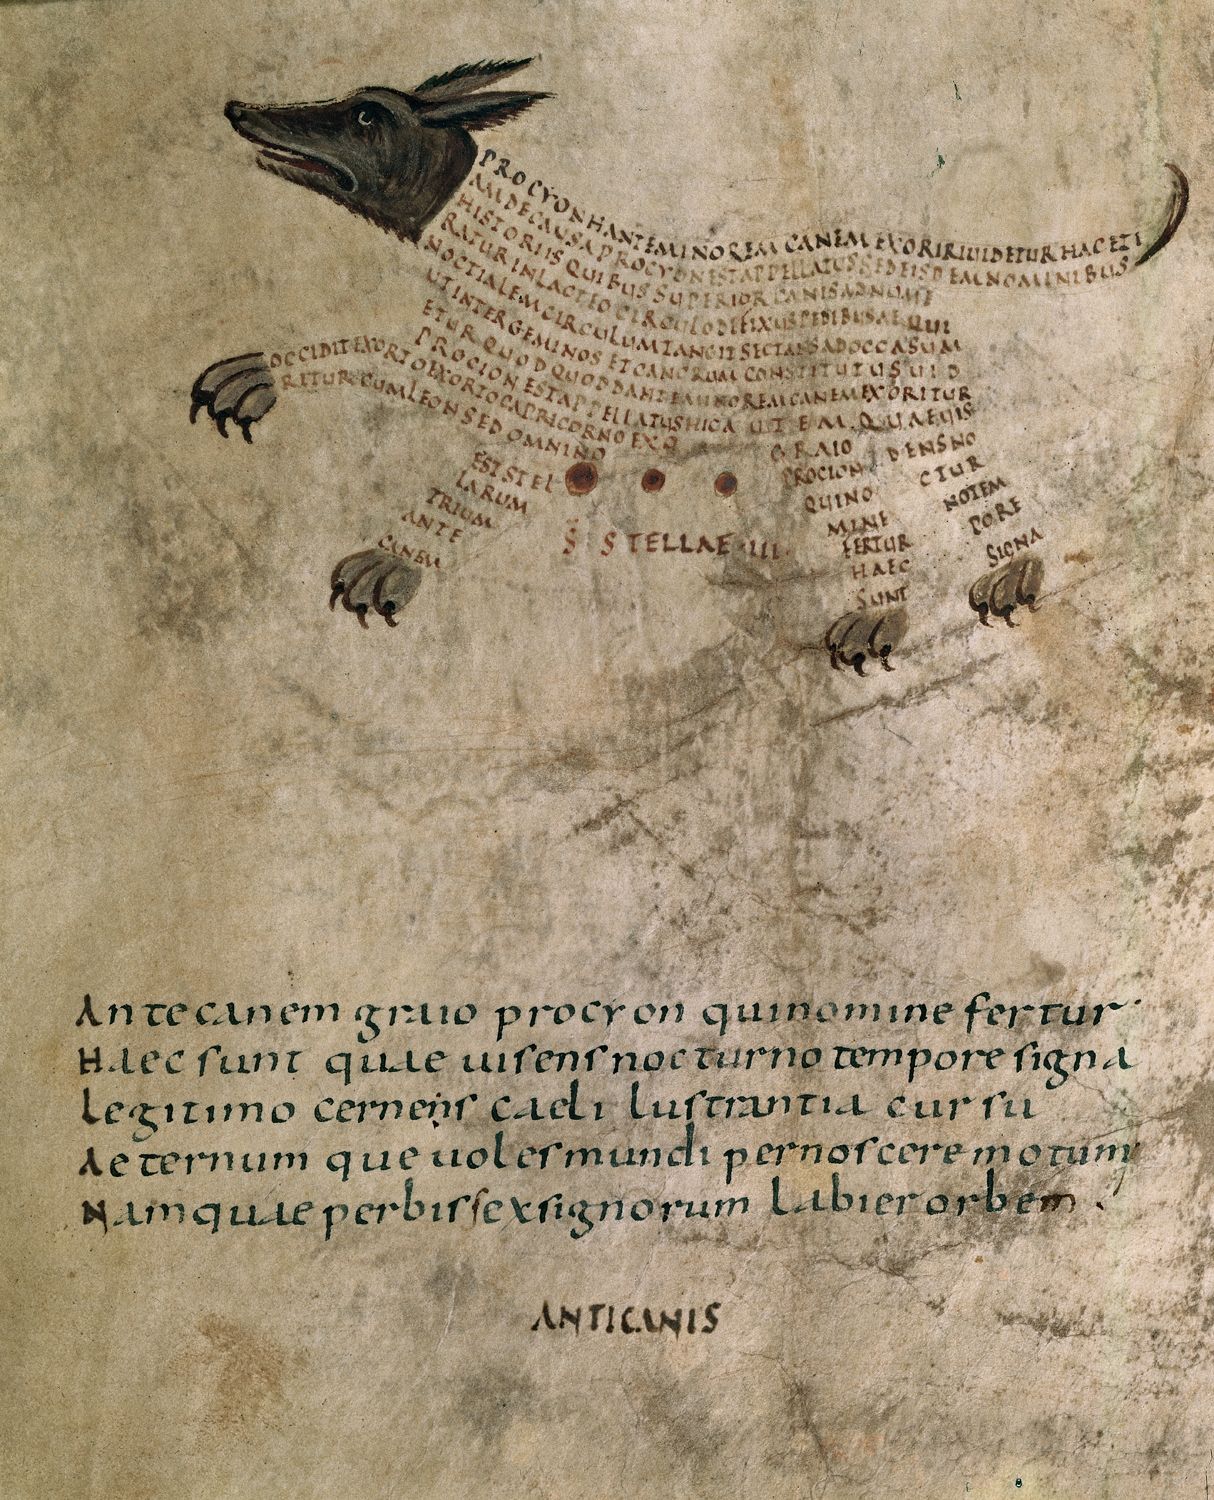 PROCYON HANTEMINOREM CANEM EXORIRIUIDETUR HAC ETI
AM DECAUSA PROCYON EST APPELLATUS SED EISDEM NOMINIBUS
HISTORIIS QUIBUS SUPERIOR CANIS AD NUME
RATUR IN LACTEO CIRCULO DEFIXUS PEDIBUS AEQUI
NOCTIALEM CIRCULUM TANGIT SPECTANS AD OCCASUM
UT INTER GEMINOS ET CANCRUM CONSTITUTUS UID
ETUR QUOD QUOD DANTEMINOREM CANEM EXORITUR
PROCION EST APPELLATUS HIC A UTEM QUAEUIS
OCCIDIT EXORTO EXORTO CAPRICORNO EXO
RITUR CUM LEON SED OMNINO
EST STEL
LARUM
TRIUM
ANTE
CANEM
GRAIO
PROCION
QUI NO
MINE
FERTUR
HAEC
SUNT
DENS NO
CTUR
NO TEM
PORE
SIGNA
S STELLAE III
Ante canem graio procyon qui nomine fertur
Haec sunt quae uisens nocturno tempore signa
Legitimo cernens caeli lustrantia cursu
Aeternumque uoles mundi pernoscere motum
Namquae per bissex signorum labier orbem .
ANTICANIS